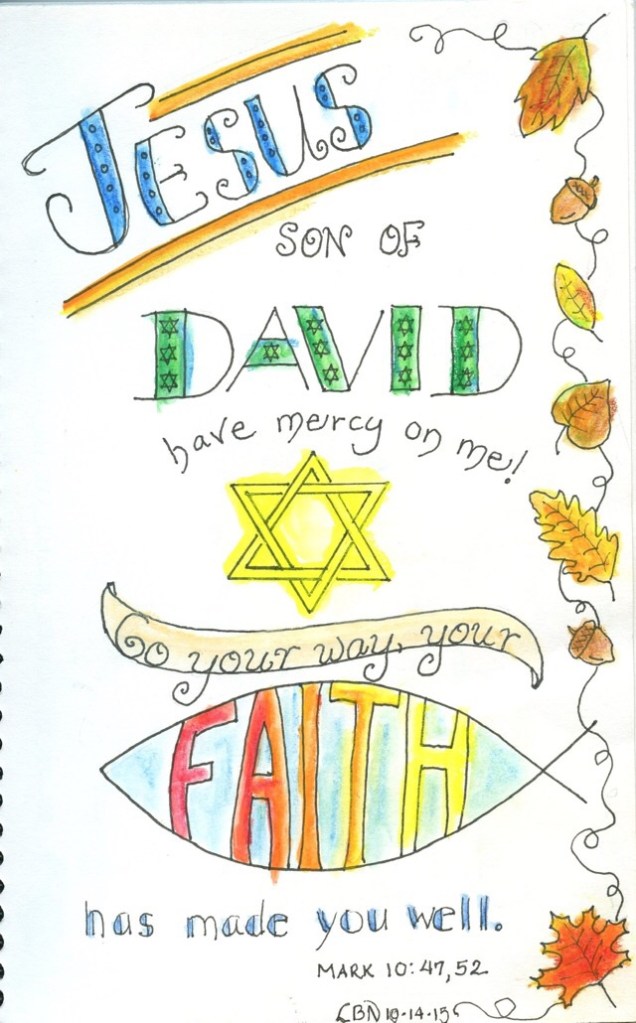 JESUS
SON OF
DAVID
have mercy on me!
Go your way, your
FAITH
has made you well.
MARK 10:47,52
CBN 10-14-15